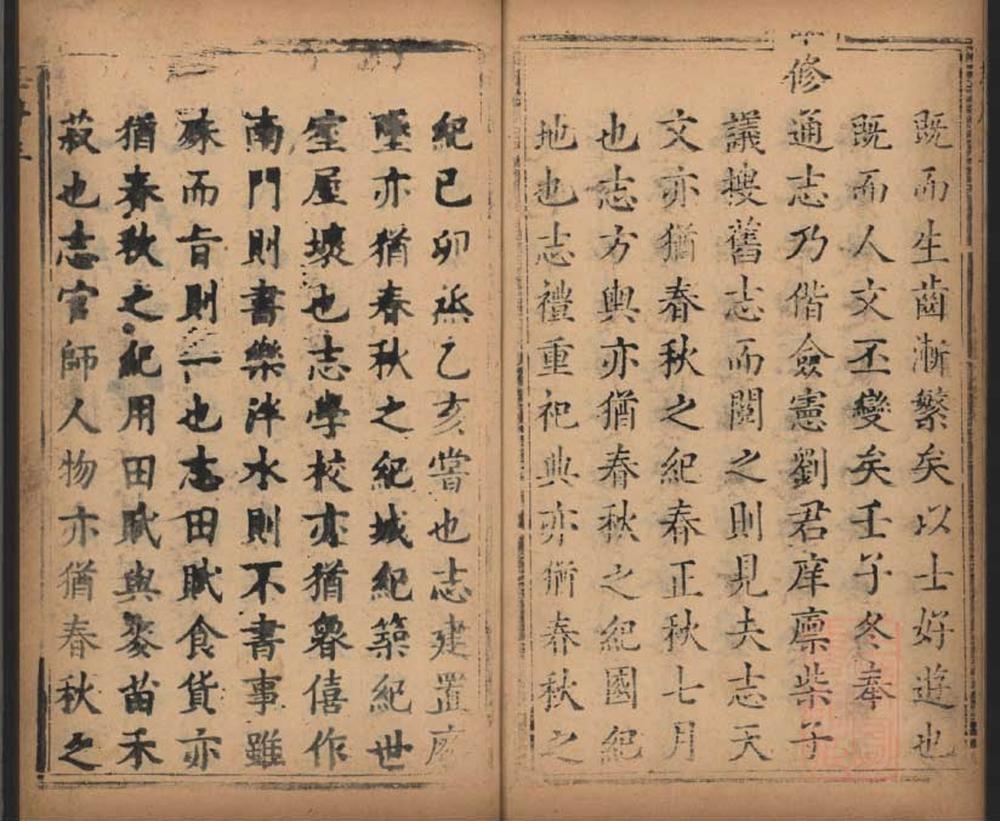 既而生齒漸繁矣以士好遊也
既而人文丕變矣壬子冬奉
修通志乃偕僉憲劉君庠廩柴子
議搜舊志而閱之則見夫志天
文亦猶春秋之紀春正秋七月
也志方輿亦猶春秋之紀國紀
地也志禮重祀典亦猶春秋之
紀己卯烝乙亥嘗也志建置廢
墜亦猶春秋之紀城紀築紀世
室屋壞也志學校亦猶魯僖作
南門則書樂泮水則不書事雖
殊而旨則一也志田賦食貨亦
猶春秋之紀用田賦與麥苗禾
菽也志官師人物亦猶春秋之